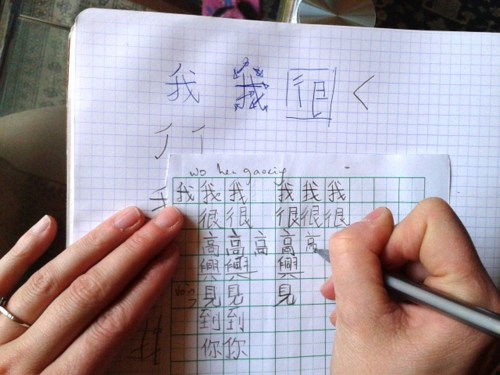 我 我 很
wo hen gaoxing
我 我 我 我 我 我
很 很 很 很 很
高 高 高 高 高
興 興 興
見 見 見
到 到
你 你